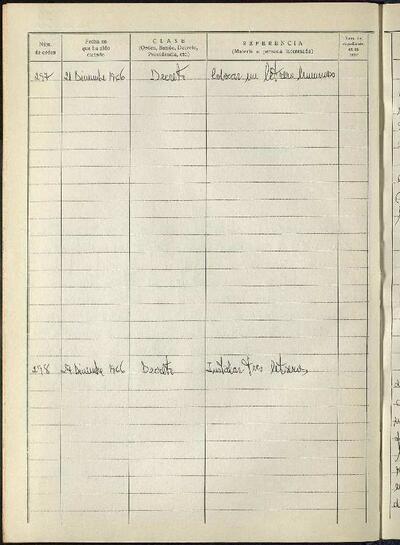 Núm. de orden
Fecha en que ha sido dictado
CLASE
(Orden, Bando, Decreto, Providencia, etc.)
REFERENCIA
(Materia o persona interesada)
297 21 Diciembre 1966 Decreto Colocar un letrero luminoso
298 Diciembre 1966 Decreto Instalar tres letreros,